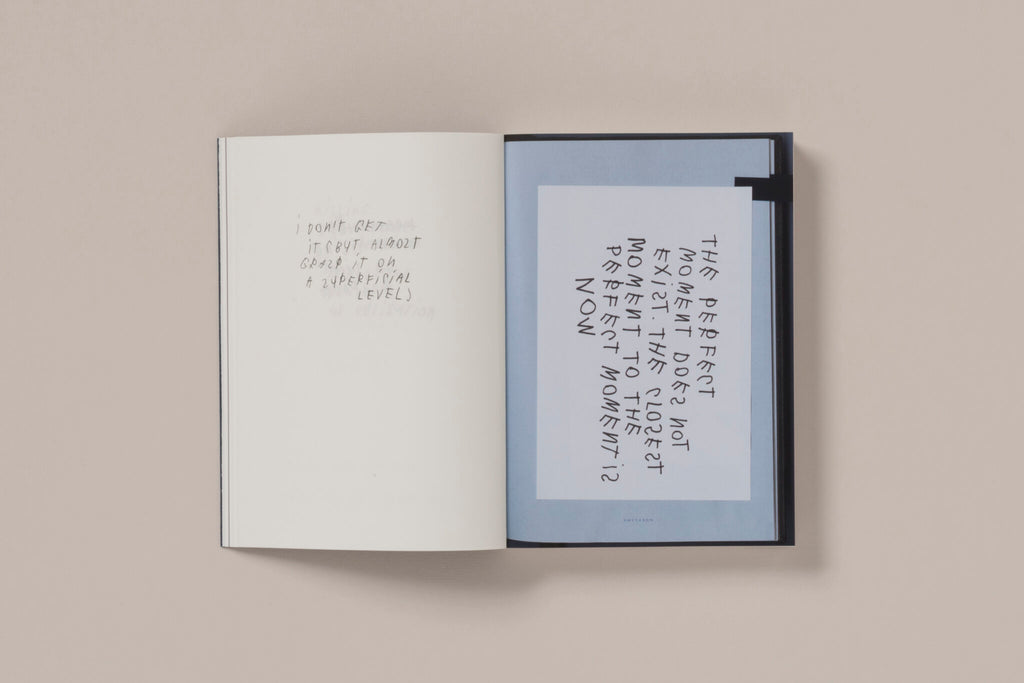 i DON'T GET
IT (BUT ALMOST
GRASP iT ON
A SUPERFICIAL
LEVEL)
THE PERFECT
MOMENT DOES NOT
EXiST. THE CLOSEST
MOMENT TO THE
PERFECT MOMENT iS
NOW